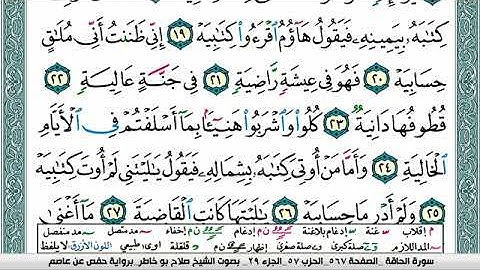 كِتَٰبَهُۥ بِيَمِينِهِۦ فَيَقُولُ هَآؤُمُ ٱقْرَءُوا۟ كِتَٰبِيَهْ ١٩ إِنِّى ظَنَنتُ أَنِّى مُلَٰقٍ
حِسَابِيَهْ ٢٠ فَهُوَ فِى عِيشَةٍ رَّاضِيَةٍ ٢١ فِى جَنَّةٍ عَالِيَةٍ ٢٢
قُطُوفُهَا دَانِيَةٌ ٢٣ كُلُوا۟ وَٱشْرَبُوا۟ هَنِيٓـًٔۢا بِمَآ أَسْلَفْتُمْ فِى ٱلْأَيَّامِ
ٱلْخَالِيَةِ ٢٤ وَأَمَّا مَنْ أُوتِىَ كِتَٰبَهُۥ بِشِمَالِهِۦ فَيَقُولُ يَٰلَيْتَنِى لَمْ أُوتَ كِتَٰبِيَهْ
٢٥ وَلَمْ أَدْرِ مَا حِسَابِيَهْ ٢٦ يَٰلَيْتَهَا كَانَتِ ٱلْقَاضِيَةَ ٢٧ مَآ أَغْنَىٰ
م إقلاب غنة إدغام بلاغنة إخفاء مد متصل مد منفصل
المد اللازم صلة كبرى صلة صغرى إظهار قلقلة طبيعي اللون الأزرق لا يلفظ
سورة الحاقة _ الصفحة ٥٦٧ _ الحزب ٥٧ _ الجزء ٢٩ _ بصوت الشيخ صلاح بو خاطر _ برواية حفص عن عاصم